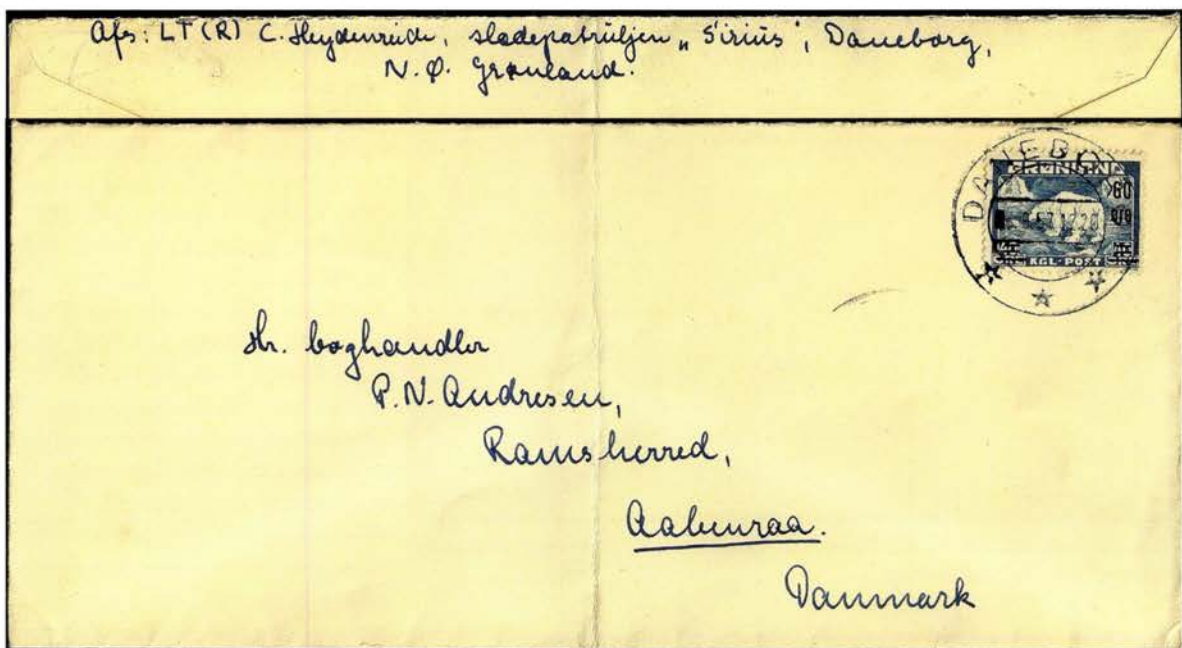 Afs: LT (R) C. Heydenreich, sladepatruljen „Sirius", Daneborg,
N.Ø. Grønland.
DANEBO
GRØNLAND
60
KGL-POST
Hr. boghandler
P.N. Andresen,
Ramsherred,
Aabenraa.
Danmark